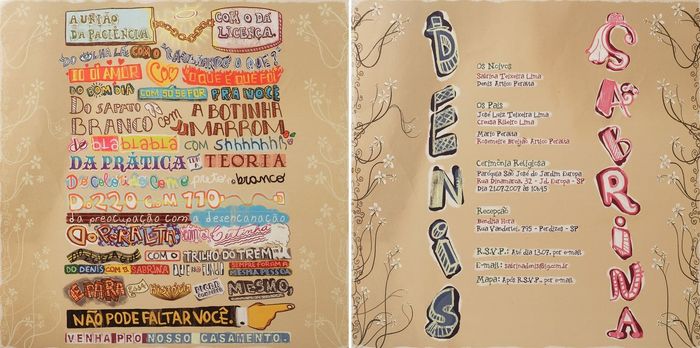 A UNIÃO
DA PACIÊNCIA.
COM O DA
LICENÇA.
DO OLHA LÁ, COM O
DO OI AMOR COM O QUE É QUE FOI
DO BOM DIA COM SÓ SE FOR PRA VOCÊ
DO SAPATO
BRANCO COM
A BOTINHA
MARROM
do blá blablá com shhhhhhh
DA PRÁTICA TEORIA
Do colorido com preto e branco
DO 220 COM 110
da preocupação com a desencanação
Do PERALTA
COM O TRILHO DO TREM
DO DENIS COM A SABRINA
SEMPRE FORAM A
MESMA PESSOA
É PARA
MESMO,
NÃO PODE FALTAR VOCÊ.
VENHA PRO NOSSO CASAMENTO.
DENIS
Os Noivos
Sabrina Teixeira Lima
Denis Artico Peralta
Os Pais
José Luiz Teixeira Lima
Creusa Ribeiro Lima
Mario Peralta
Rosemeire Breijão Artico Peralta
Cerimônia Religiosa
Paróquia São José do Jardim Europa
Rua Dinamarca, 32 - Jd. Europa - SP
Dia 21.07.2007 às 10h45
Recepção
Bendita Hora
Rua Vanderlei, 795 - Perdizes - SP
R.S.V.P.: Até dia 13.07, por e-mail
E-mail: sabrinadenis@ig.com.br
Mapa: Após R.S.V.P., por e-mail
SABRINA